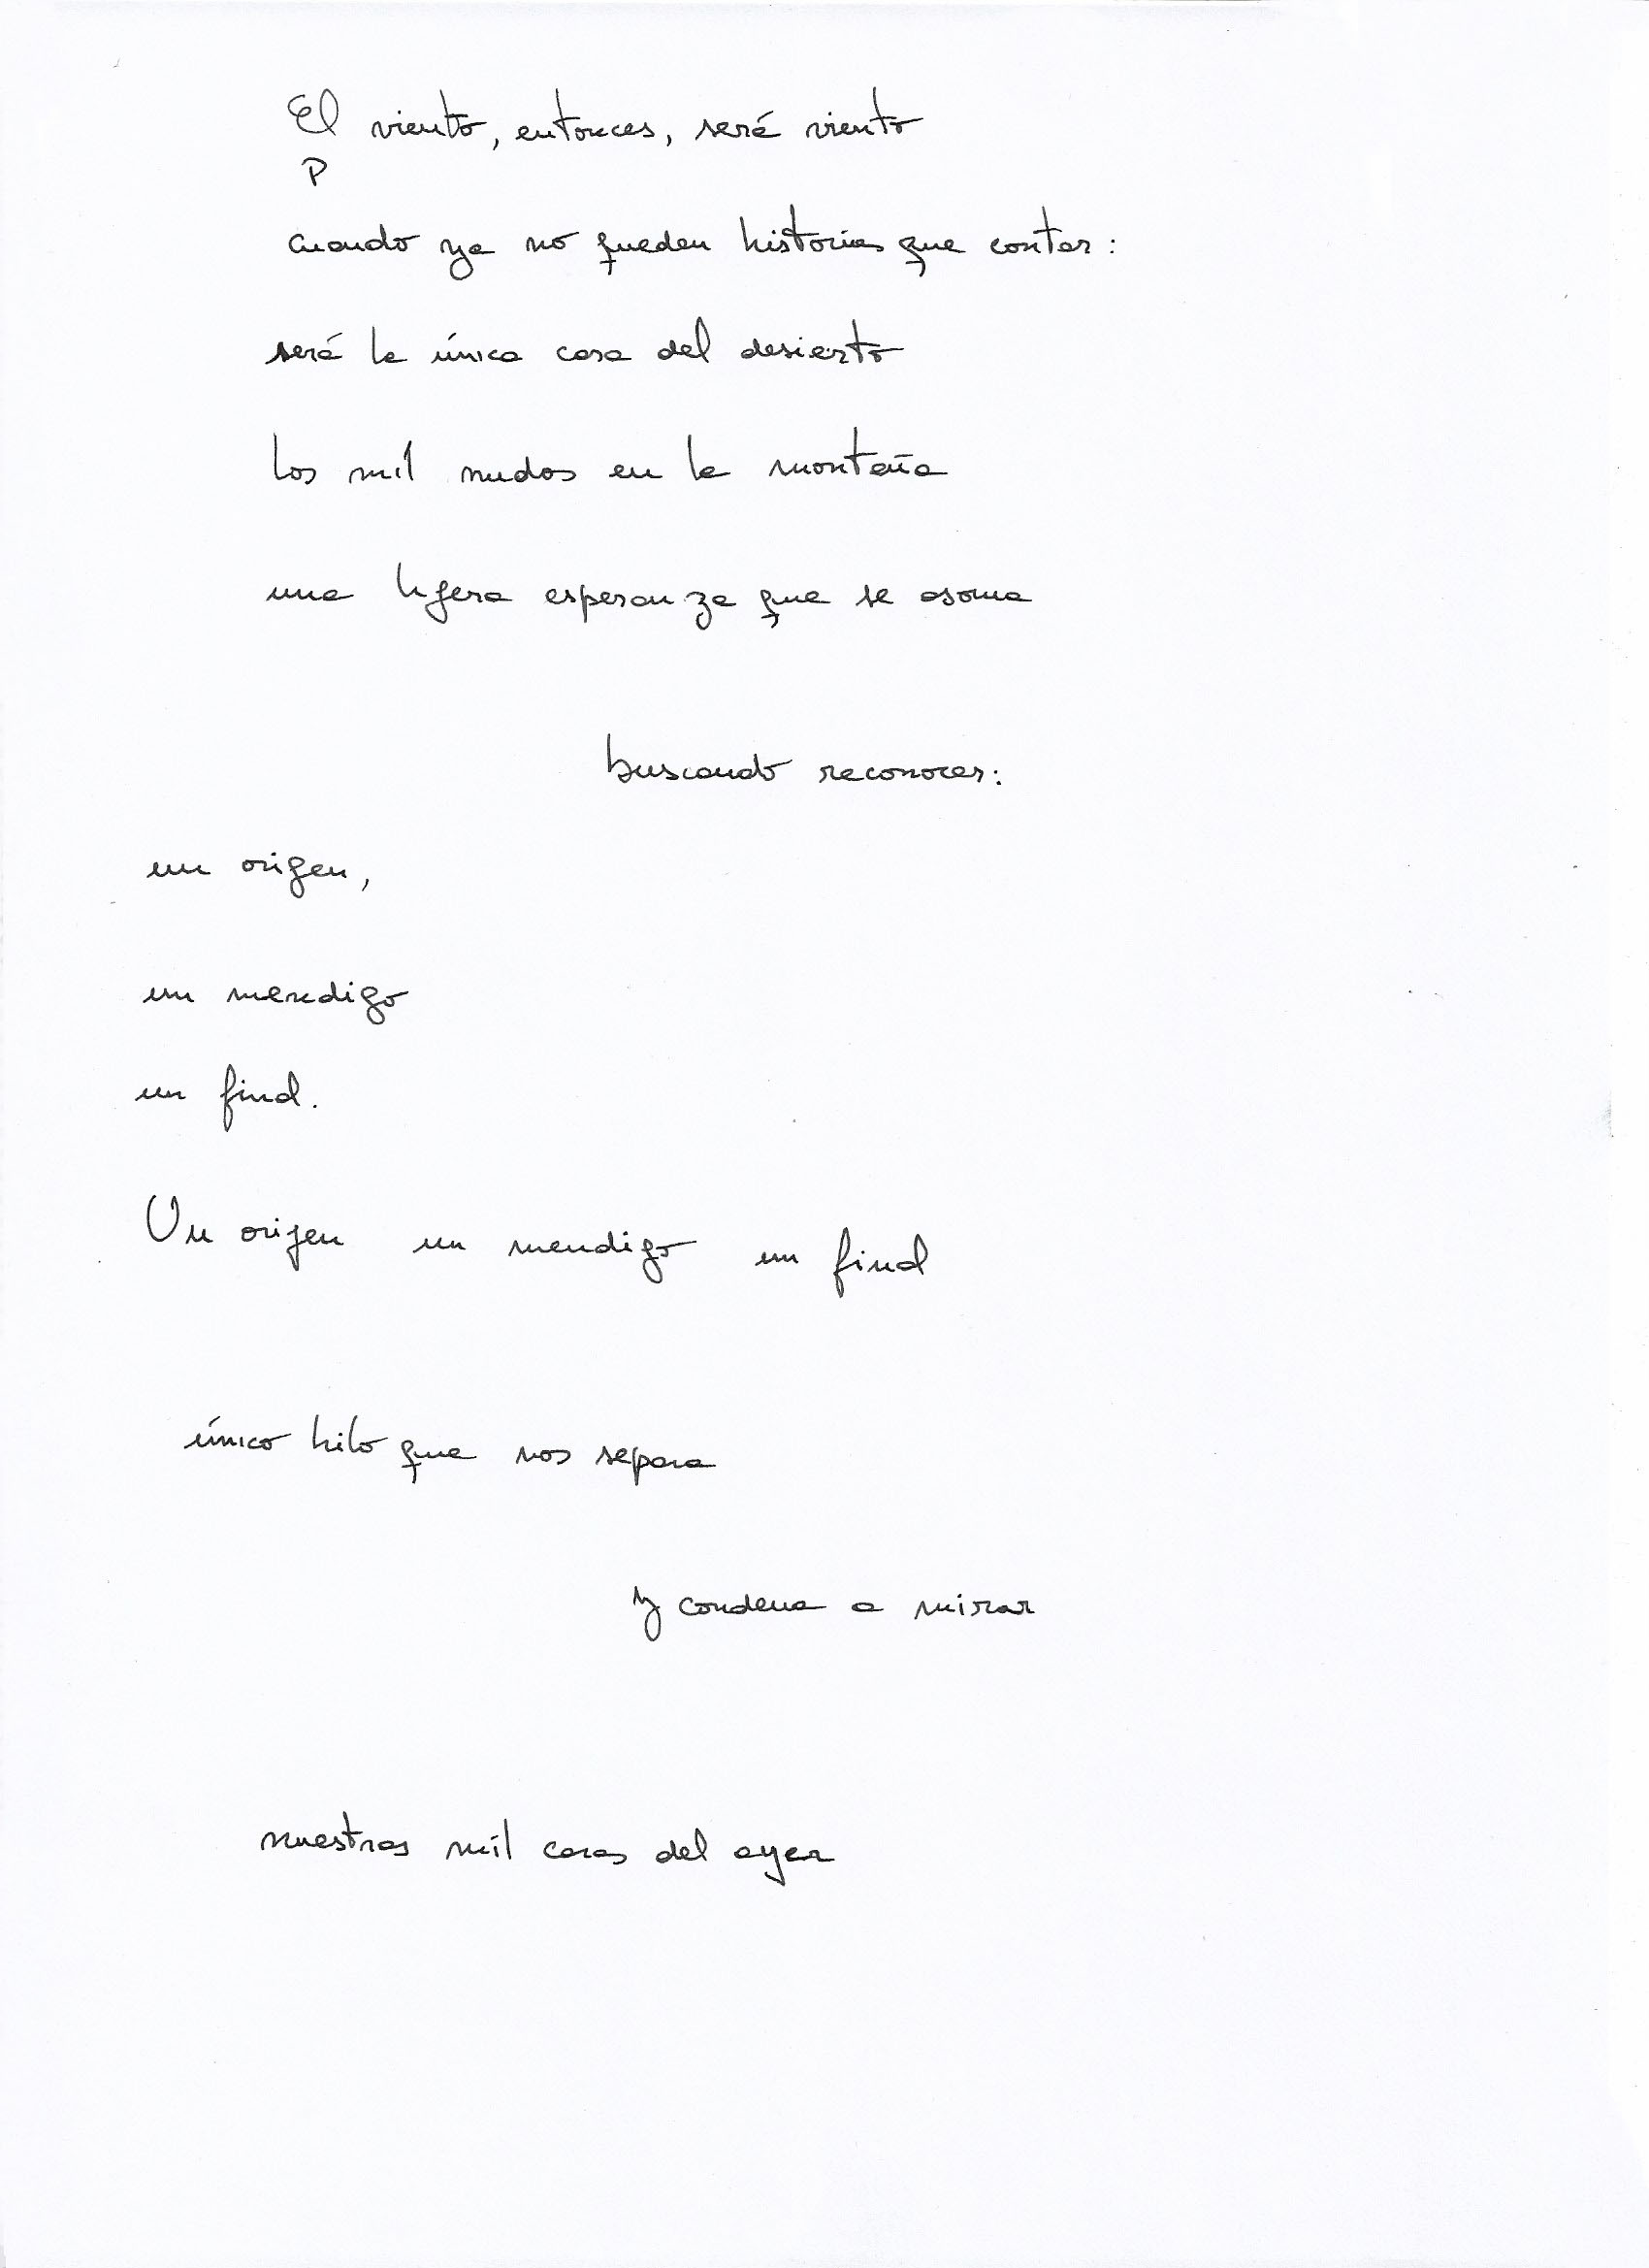 El viento, entonces, será viento
P
cuando ya no queden historias que contar:
será la única casa del desierto
los mil nudos en la montaña
una ligera esperanza que se asoma
buscando reconocer:
un origen,
un mendigo
un final.
Un origen un mendigo un final
único hilo que nos separa
y condena a mirar
nuestras mil caras del ayer